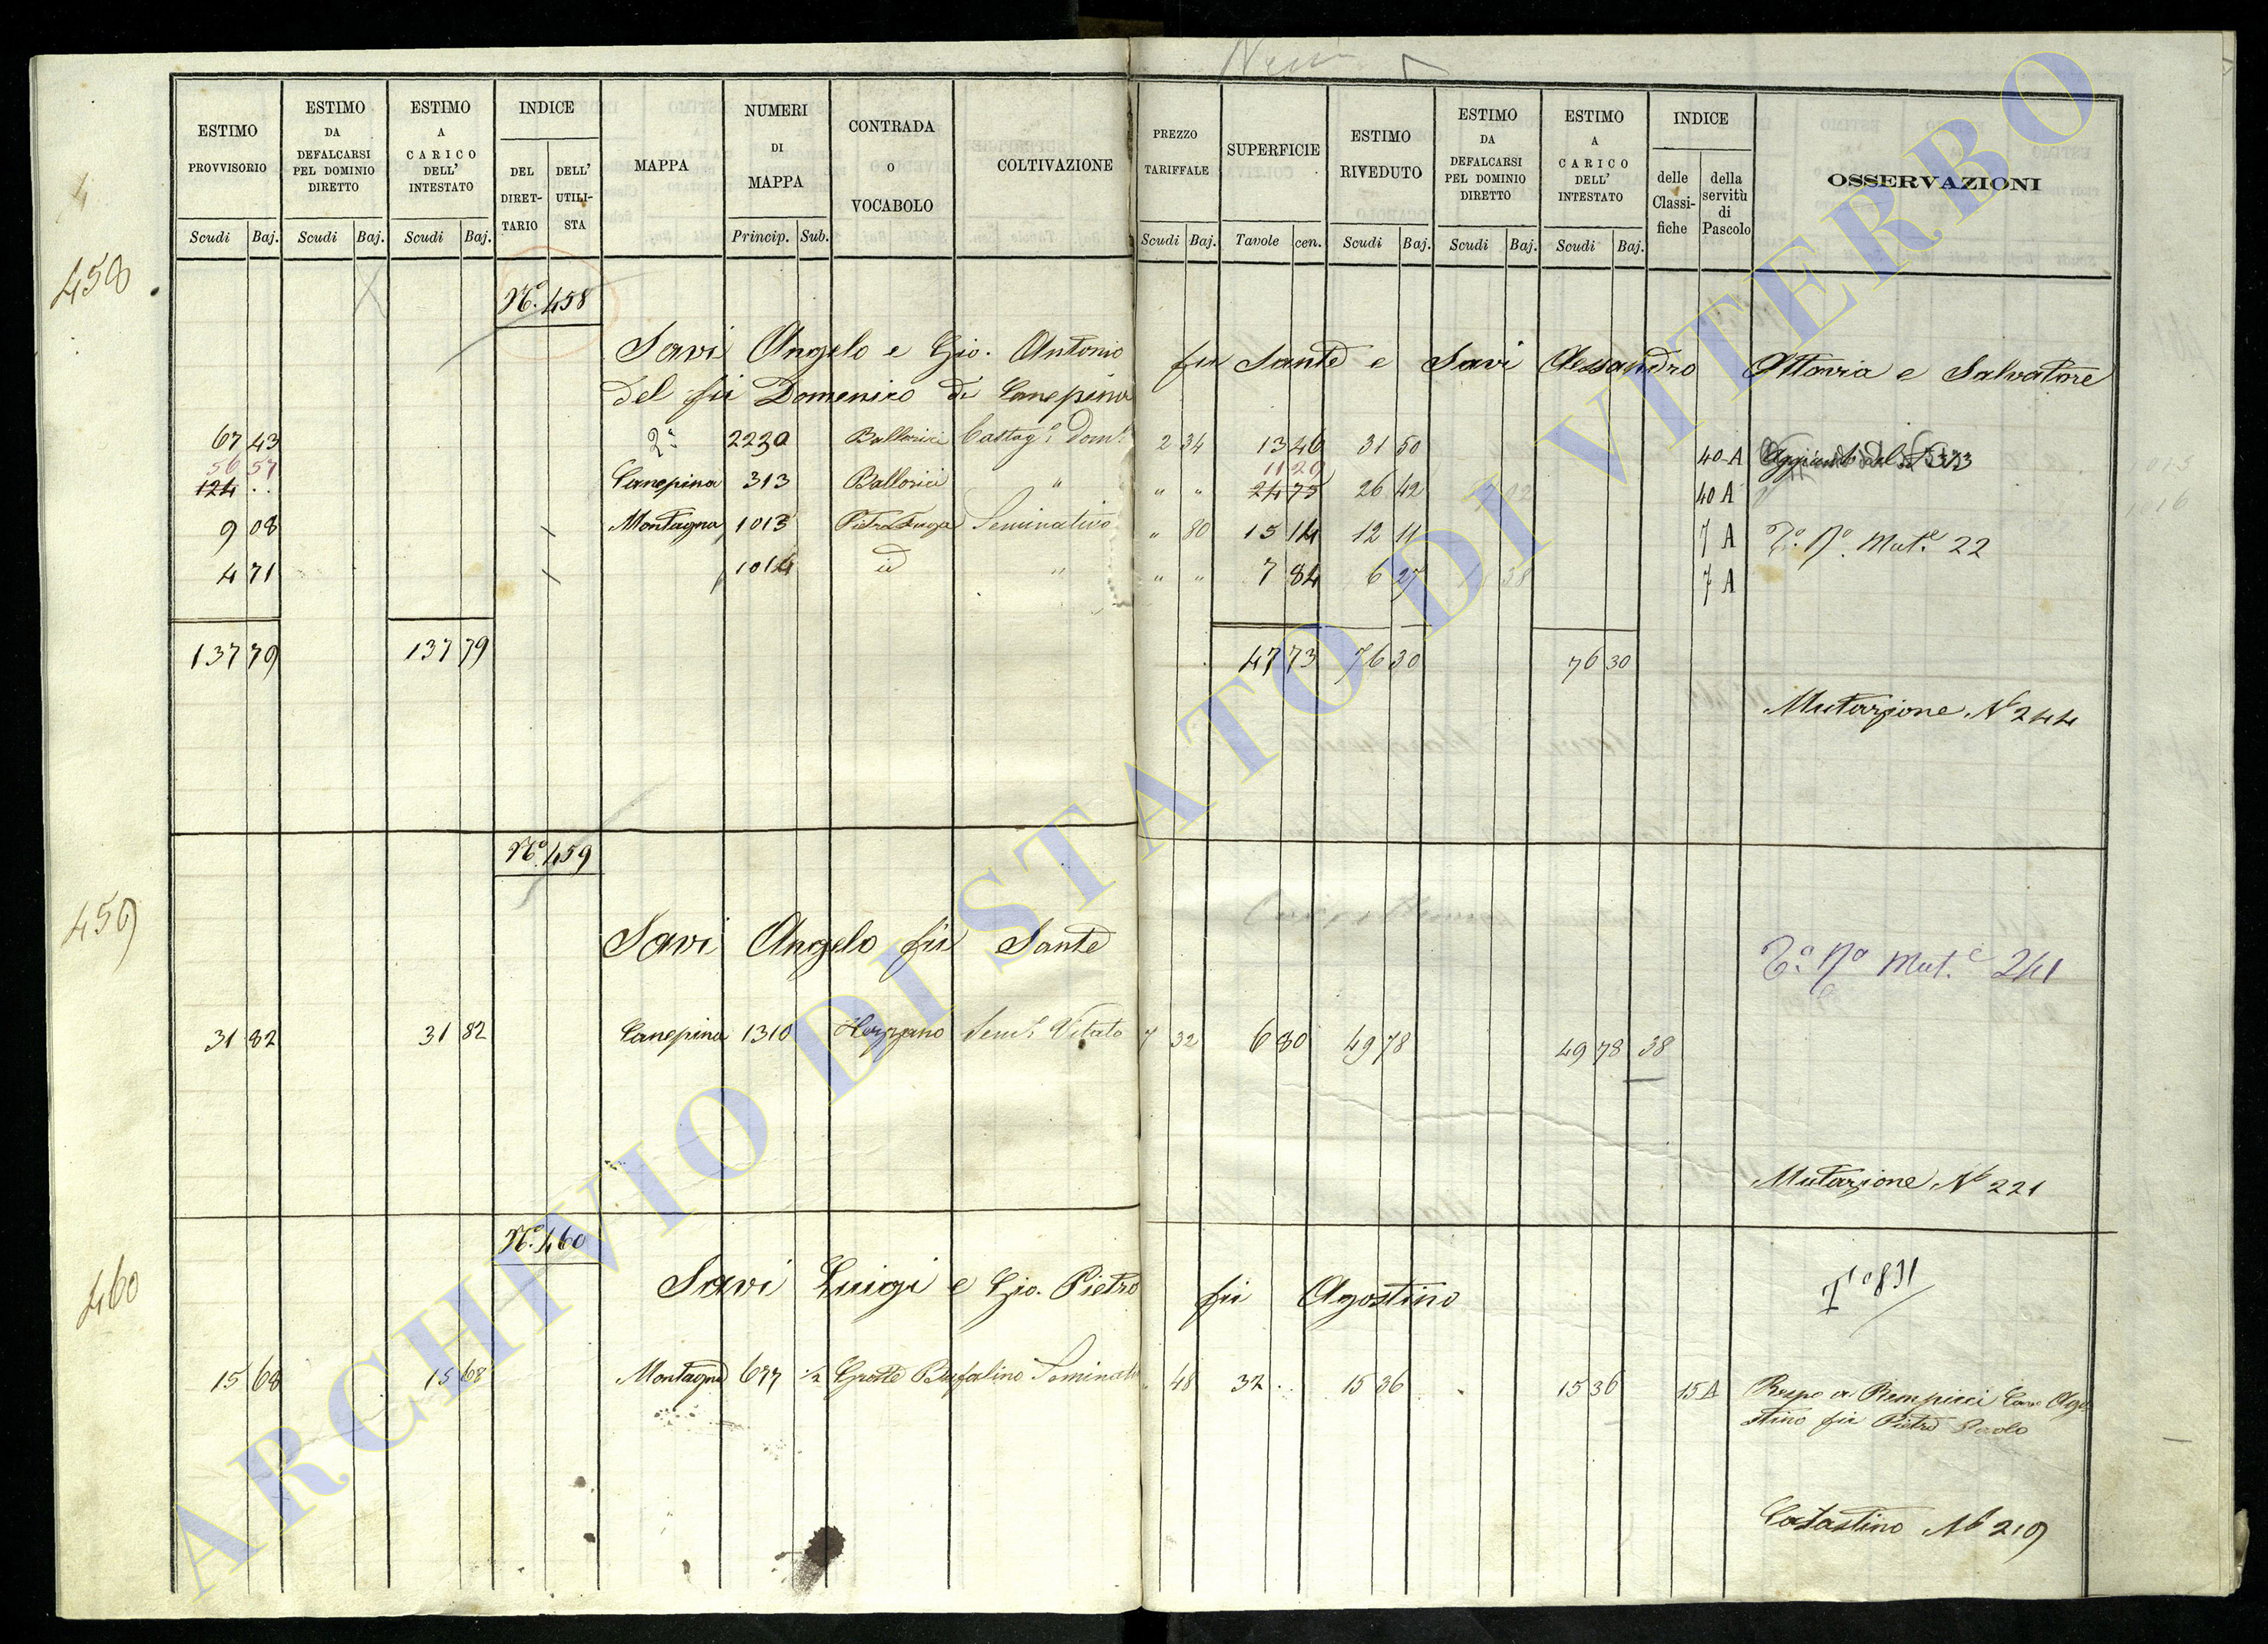 ESTIMO PROVVISORIO
ESTIMO DA DEFALCARSI PEL DOMINIO DIRETTO
ESTIMO A CARICO DELL' INTESTATO
INDICE
DEL DIRET-TARIO
DELL' UTILI-STA
MAPPA
NUMERI DI MAPPA
CONTRADA O VOCABOLO
COLTIVAZIONE
PREZZO TARIFFALE
SUPERFICIE
ESTIMO RIVEDUTO
ESTIMO DA DEFALCARSI PEL DOMINIO DIRETTO
ESTIMO A CARICO DELL' INTESTATO
INDICE
delle Classi-fiche
della servitù di Pascolo
OSSERVAZIONI
Scudi Baj. Scudi Baj. Scudi Baj. Princip. Sub. Scudi Baj. Tavole cen. Scudi Baj. Scudi Baj. Scudi Baj.
458
N.° 458
Savi Angelo e Gio. Antonio fu Sante e Savi Alessandro Ottavia e Salvatore
del fu Domenico di Canepina
67 43 2a 2230 Ballorici Castag. Dom. 2 34 13 46 31 50 40-A
56 57 11 29
124 .. Canepina 313 Ballorici " " " 24 75 26 42 40 A
9 08 Montagna 1013 Seminativo " 80 15 14 12 11 7 A T.a N.a Mut.e 22
4 71 1014 id " " " 7 84 6 27 7 A
137 79 137 79 47 73 76 30 76 30
Mutazione N° 244
459
N.° 459
Savi Angelo fu Sante
T.a N.a Mut.e 241
31 82 31 82 Canepina 1310 Sem. Vitato 7 32 6 80 49 78 49 78 38
Mutazione N° 221
460
N.° 460
Savi Luigi e Gio. Pietro fu Agostino
831
15 68 15 68 Montagna 677 1/2 Grotte Bufalino Seminat " 48 32 .. 15 36 15 36 15 A
stino fu Pietro Paolo
Catastino N° 219
ARCHIVIO DI STATO DI VITERBO